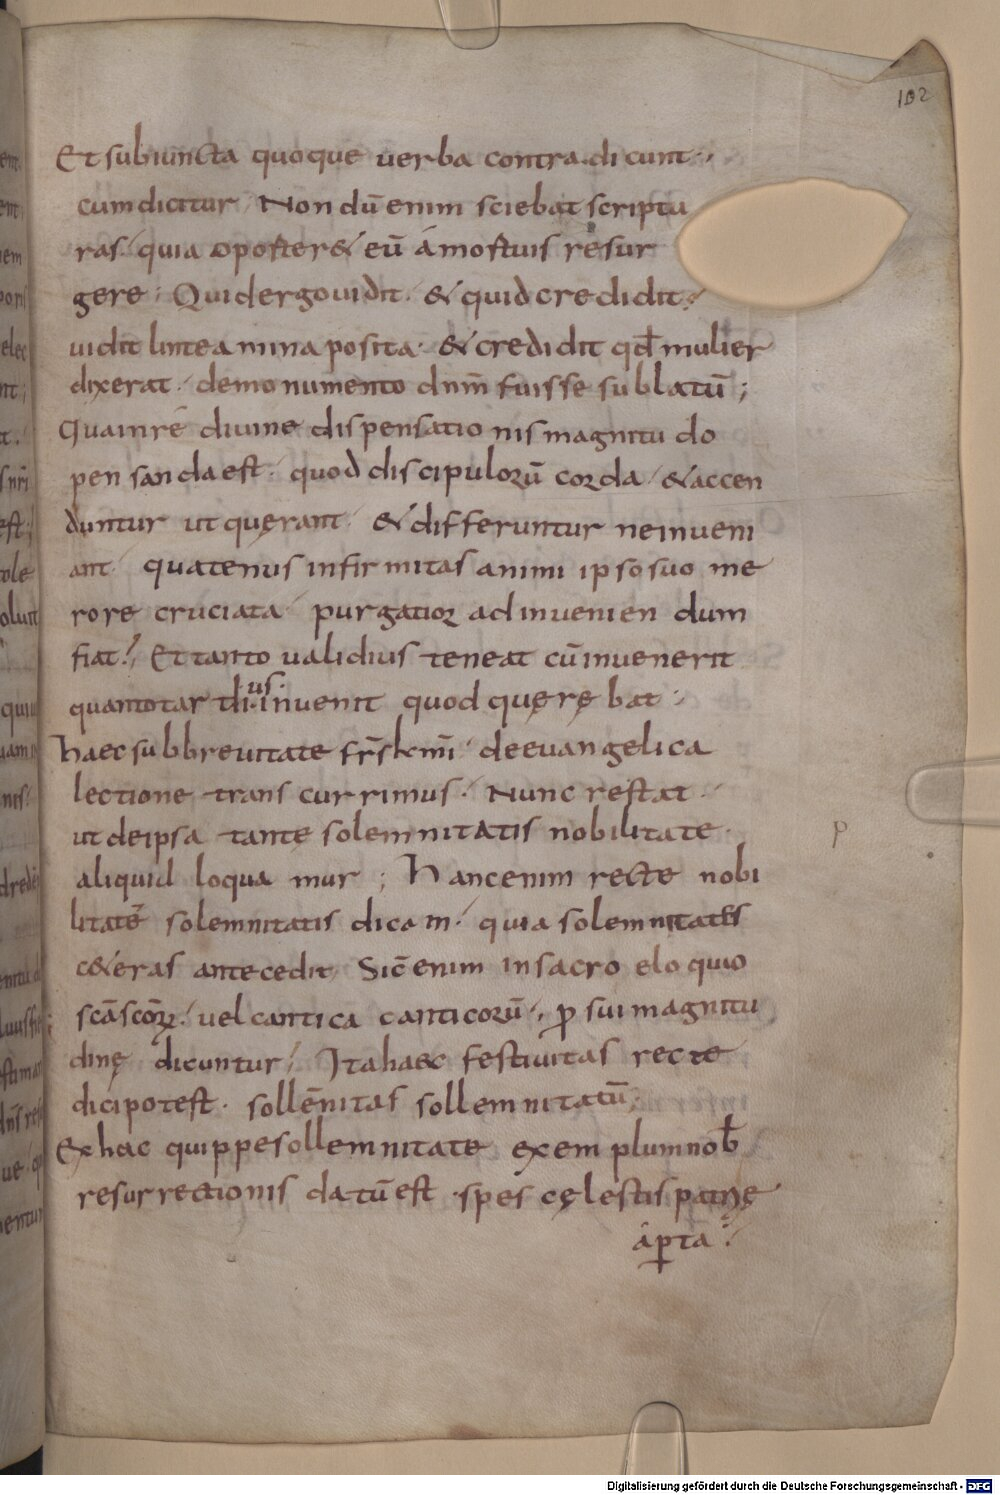 102
Et subiuncta quoque uerba contradicunt.,
cum dicitur. Non dū enim sciebat scriptu
ras. quia oporter& eū á mortuis resur
gere; Quid ergo uidit. & quid credidit?
uidit linteamina posita. & credidit qđ mulier
dixerat. de monumento dnm̄ fuisse sublatū;
Qua in re diuine dispensationis magnitudo
pensanda est. quod discipulorū corda. & accen
duntur ut quęrant. & differuntur ne inueni
ant. quatenus infirmitas animi ipso suo me
rore cruciata. purgatior ad inueniendum
fiat. Et tanto ualidius teneat cū inuenerit
quanto tardius inuenit quod quęrębat.
Haec sub breuitate frs̄ kmī. de euangelica
lectione transcurrimus. Nunc restat.
ut de ipsa tantę solemnitatis nobilitate.
aliquid loquamur; Hanc enim recte nobi
litatē solemnitatis dicam. quia solemnitates
c&eras antecedit. Sic̄ enim in sacro eloquio
scā scōrꝝ. uel cantica canticorū. ꝓ sui magnitu
dinę dicuntur. Ita haec festiuitas recte
dici potest. sollēnitas sollemnitatū;
Ex hac quippe sollemnitate exemplum nob̄
resurrectionis datū est. spes cęlestis patrię
áꝑta.
p
Digitalisierung gefördert durch die Deutsche Forschungsgemeinschaft - DFG